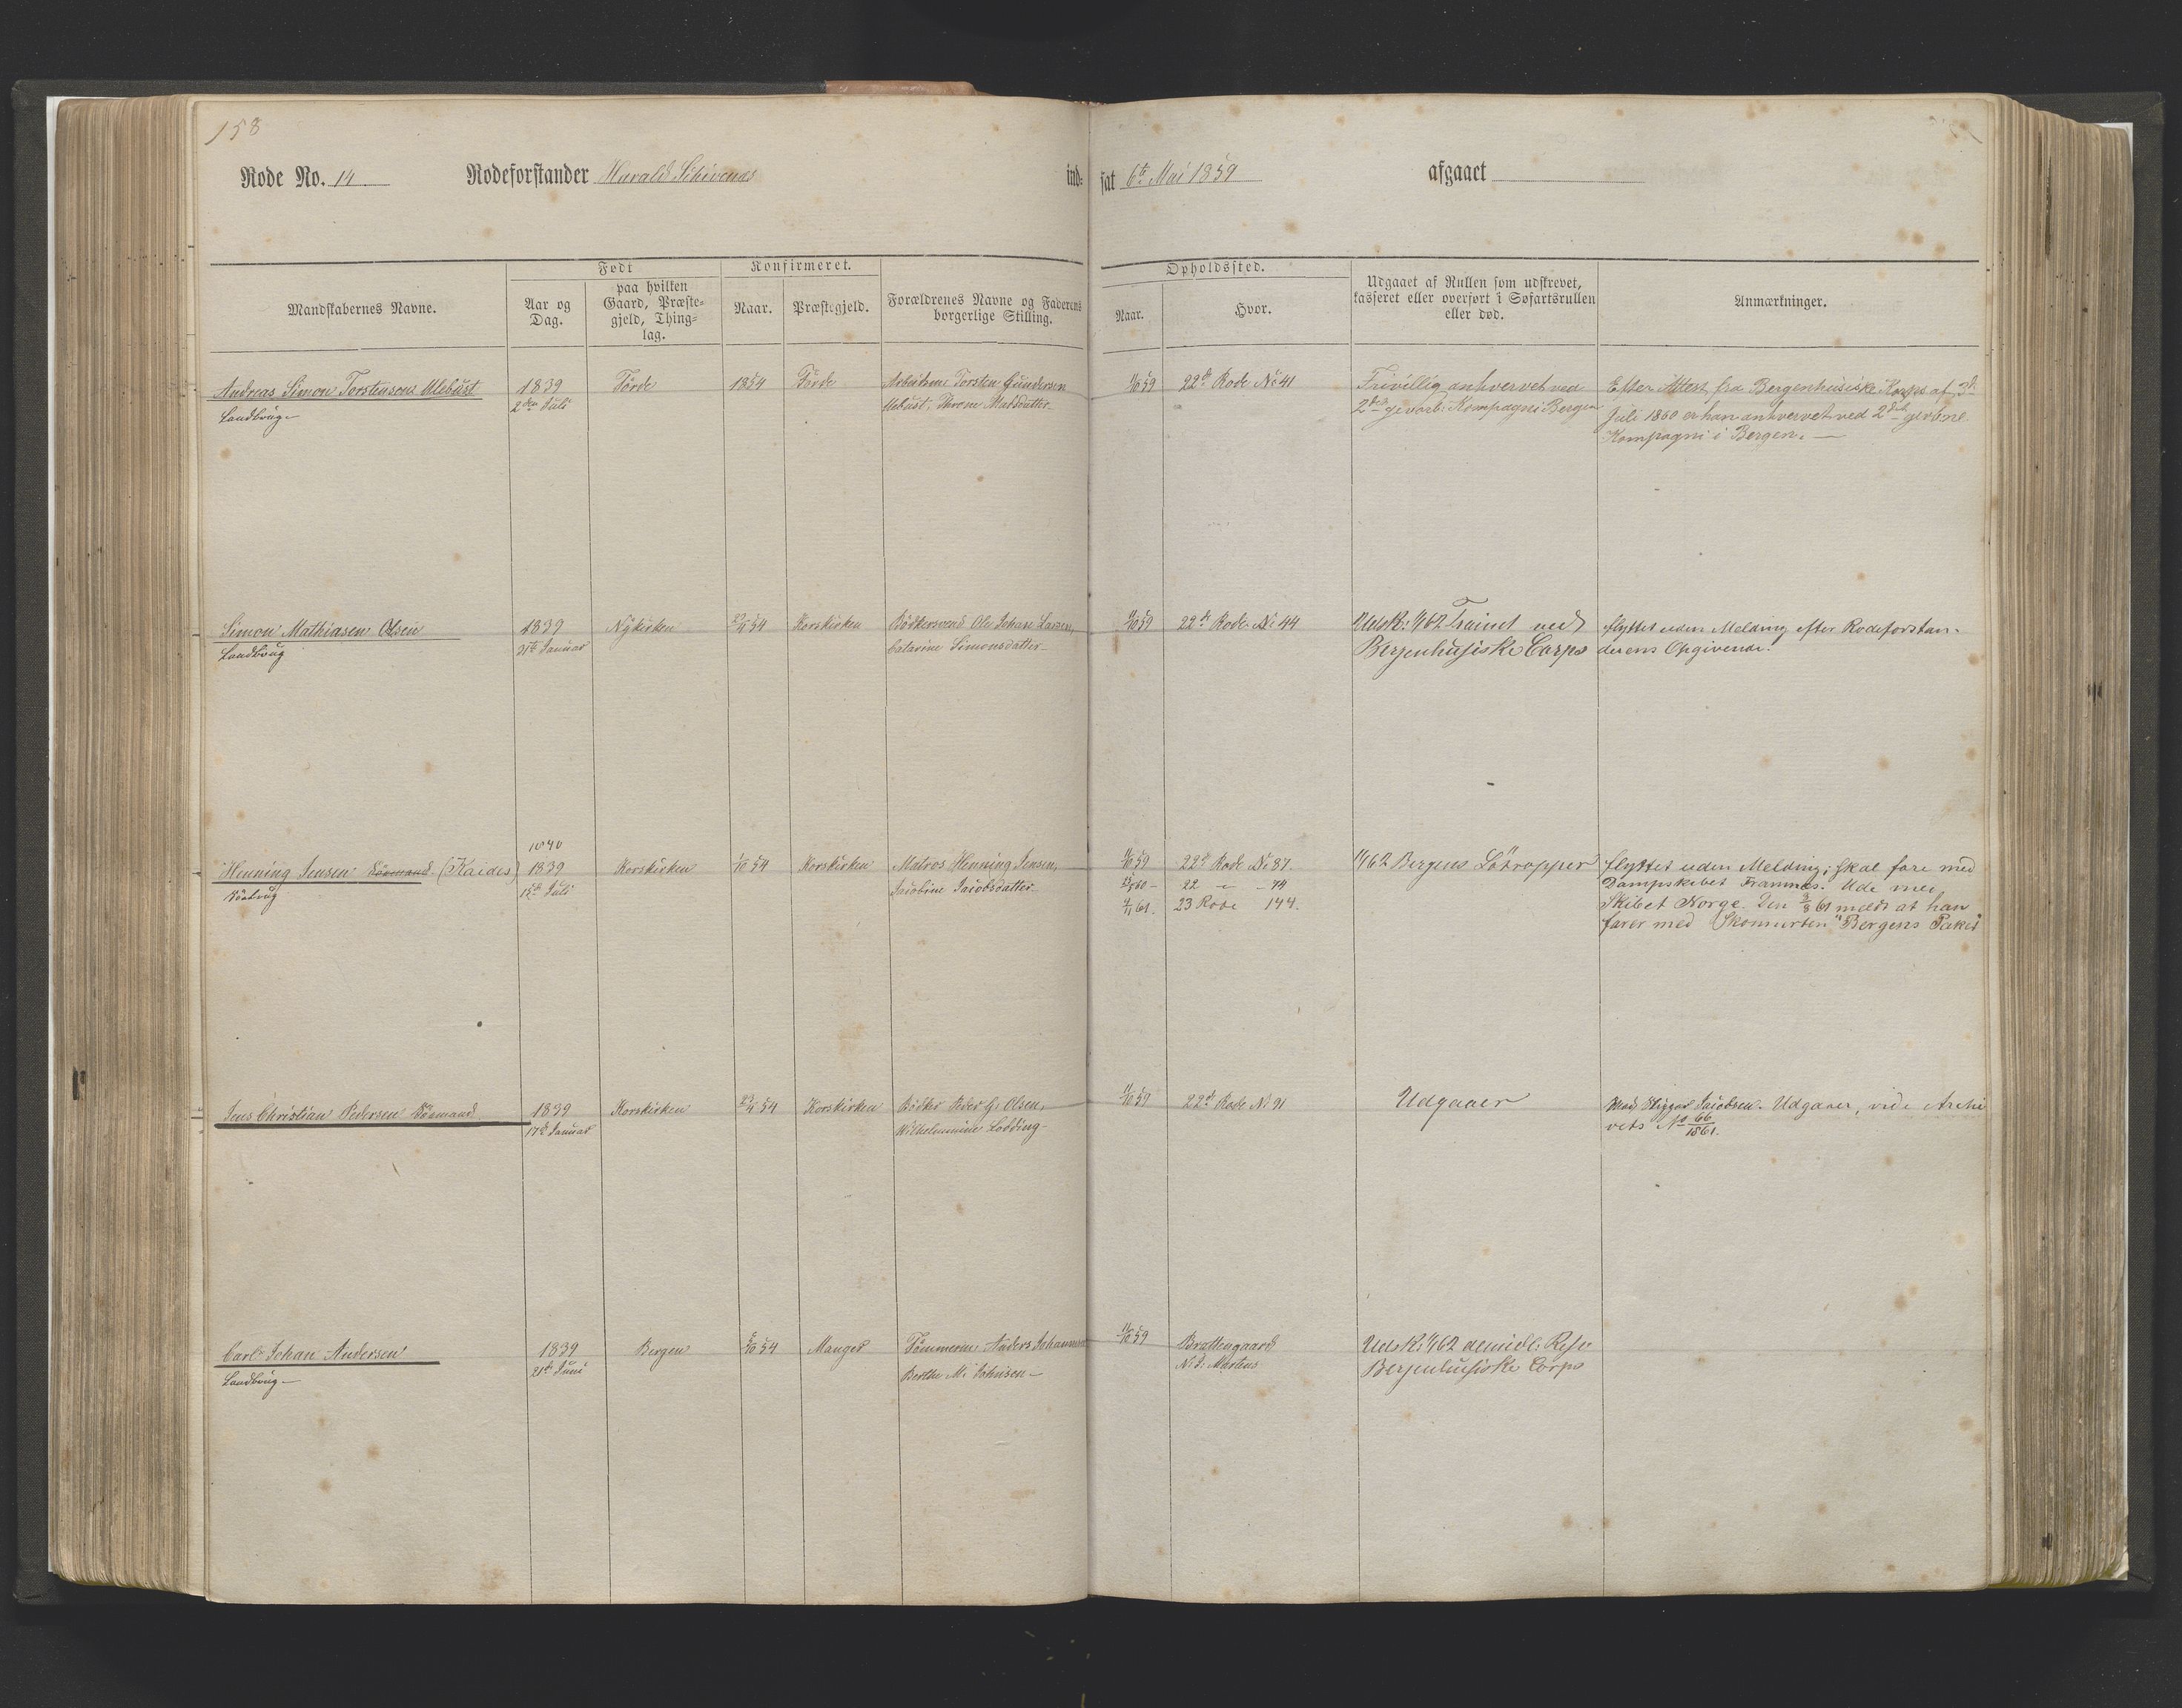 158
Rode No. 14 Rodeforstander Harald ind-
sat 6te Mai 1859 afgaaet
Mandskabernes Navne.
Født
Aar og Dag.
paa hvilken Gaard, Præste-
gjeld, Thing-
lag.
Konfirmeret.
Naar. Præstegjeld.
Forældrenes Navne og Faderens
borgerlige Stilling.
Opholdssted.
Naar. Hvor.
Udgaaet af Rullen som udskrevet,
kasseret eller overført i Søfartsrullen
eller død.
Anmærkninger.
Andreas Simon Torstensen Mebust
Landbrug-
1839
2den Juli
Förde
1854
Förde
Arbeidsm Torsten Gundersen
Mebust, Madsdatter-
11/10 59
22de Rode No 41
Frivillig anhvervet ved
2det gevorb: Kompagni Bergen
Efter Attest fra Bergenhusiske Korps af 3de
Juli 1860 er han anhvervet ved 2det gevbne
Kompagni i Bergen. —
Simon Mathiasen Olsen
Landbrug
1839
31te Januar
Nykirken
23/4 54
Korskirken
Bödkersvend Ole Johan Larsen,
Catarine Simonsdatter-
11/10 59
22de Rode No 44
Udsk: 1/1 62 Trainet ved
Bergenhusiske Corps
flyttet uden Melding efter Rodeforstan-
derens Opgivende.
Henning Jensen Sömand (Kaides)
1840
1839
15de Juli
Korskirken
1/10 54
Korskirken
Matros Henning Jensen,
Jacobine Jacobsdatter-
11/10 59 22de Rode No 87.
60 - 22 - - 74
61. 23 Rode 144.
1/1 62 Bergens Sötropper
flyttet uden Melding; skal fare med
Dampskibet Framnæs. Ude med
Skibet Norge. Den 3/8 61 meldt at han
farer med Skonnerten "Bergens Paket"
Jens Christian Pedersen Sömand
1839
17de Januar
Korskirken
23/4 54
Korskirken
Bödker Peder G. Olsen,
Wilhelmine Lodding-
11/10 59
22de Rode No 91
Udgaaer
Mad. Jacobsen. Udgaaer, vide Archi
vets No 66/1861.
Carl Johan Andersen
Landbrug -
1839
21de Juni
Bergen
1/10 54
Manger
Tömmerm. Anders Johannesen
Berthe M. Johnsen -
11/10 59
Brattengaard
N. d. Martens
Udsk: 1/1 62
Bergenhusiske Corps